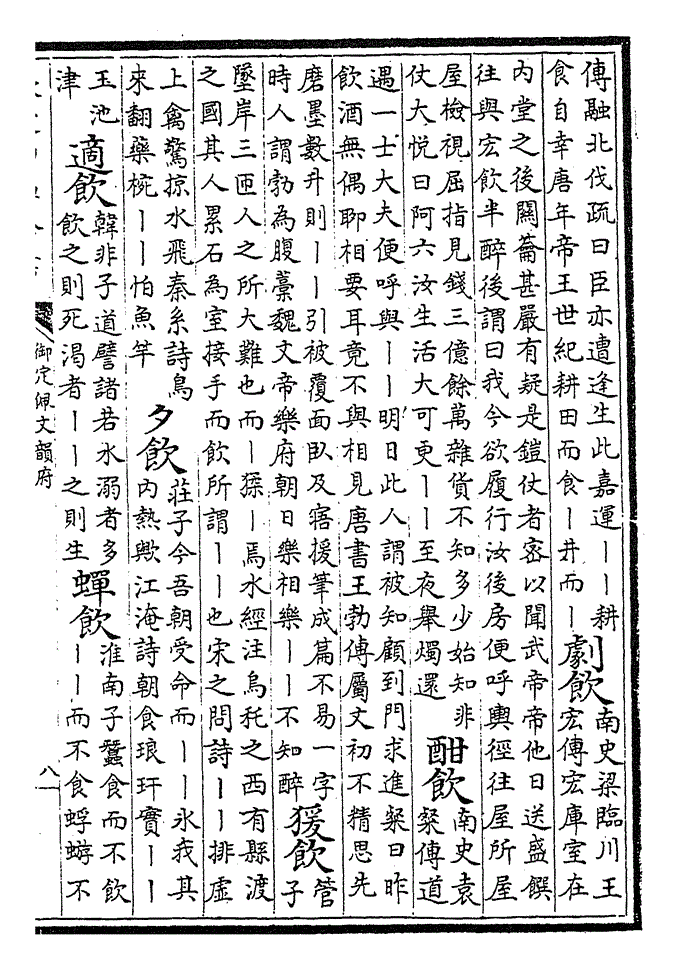 傅融北伐疏曰臣亦遭逢生此嘉運丨丨耕
食自幸唐年帝王世紀耕田而食丨井而丨
劇飲
南史梁臨川王
宏傳宏庫室在
內堂之後關籥甚嚴有疑是鎧仗者密以聞武帝帝他日送盛饌
往與宏飲半醉後謂曰我今欲履行汝後房便呼輿徑往屋所屋
屋檢視屈指見錢三億餘萬雜貨不知多少始知非
仗大悅曰阿六汝生活大可更丨丨至夜舉燭還
酣飲
南史袁
粲傳道
遇一士大夫便呼與丨丨明日此人謂被知顧到門求進粲曰昨
飲酒無偶聊相要耳竟不與相見唐書王勃傳屬文初不精思先
磨墨數升則丨丨引被覆面臥及寤援筆成篇不易一字
時人謂勃為腹藁魏文帝樂府朝日樂相樂丨丨不知醉
猨飲
管
子
墜岸三匝人之所大難也而丨猱丨焉水經注烏秅之西有縣渡
之國其人累石為室接手而飲所謂丨丨也宋之問詩丨丨排虛
上禽驚掠水飛秦系詩鳥
來翻藥椀丨丨怕魚竿
夕飲
莊子今吾朝受命而丨丨氷我其
內熱歟江淹詩朝食琅玕實丨丨
玉池
津
適飲
韓非子道譬諸若水溺者多
飲之則死渴者丨丨之則生
蟬飲
淮南子蠶食而不飲
丨丨而不食蜉蝣不
御定佩文韻府